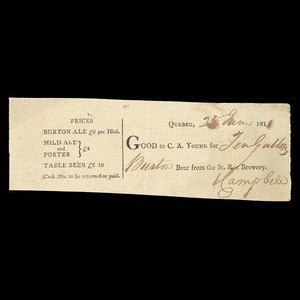 PRICES
BURTON ALE £6 per Hhd.
MILD ALE
and
PORTER
£4
TABLE BEER £2 10
(Cask 20s. to be returned or paid.
QUEBEC, 25 Jan 181
GOOD to C. A. YOUNG for Ten Gallons
Burton Beer from the St. Roc Brewery.
Campbell